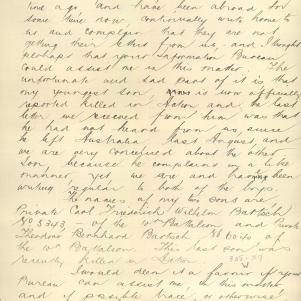 time ago and have been abroad for
some time now, continually write home to
us and complain that they are not
getting their letters from us, and I thought
perhaps that your Information Bureau
could assist me in this matter. The
unfortunate and sad part of it is that
my youngest son, was now officially
reported killed in Action and the last
letter we received from him was that
he had not heard from us, since
he left Australia last August, and
we are very concerned about the other
son, because he complains in a like
manner, yet we are and having been
writing regular to both of the boys.
The names of my two sons are
Private Carl Friedrich Wilhelm Bartsch
No 5343 of the Battalion and Private
Theodore Bernhard Bartsch No 6046 of
the Battalion. This last son was
recently killed in Action
I would deem it a favour if your
Bureau can assist me, in this matter
and if possible trace, or otherwise